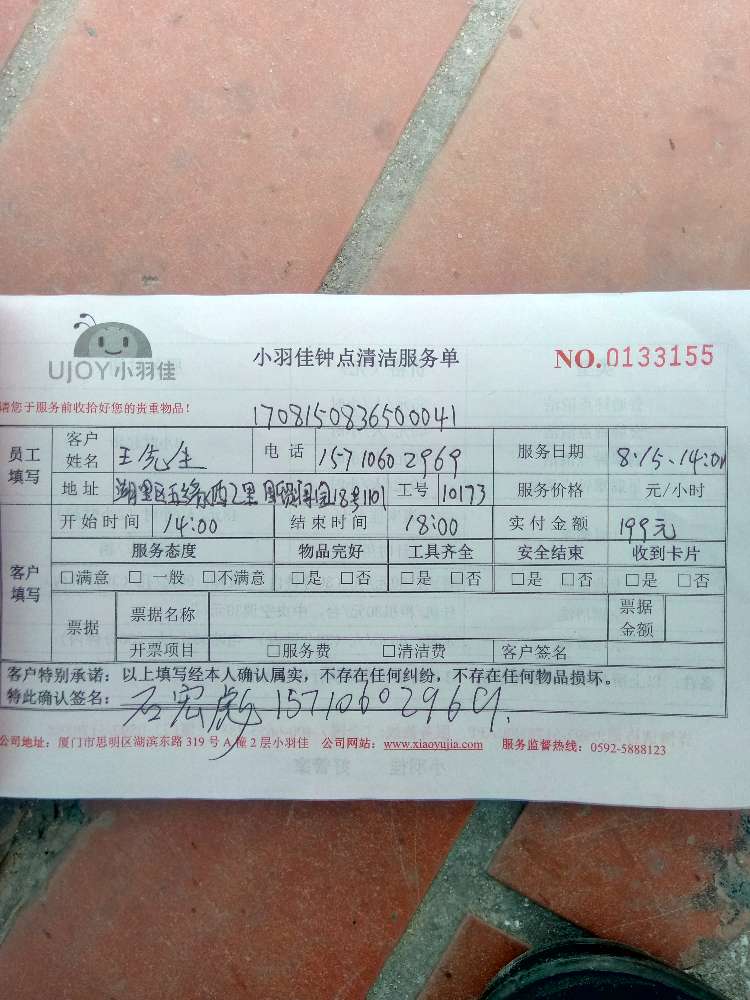 UJOY小羽佳
小羽佳钟点清洁服务单
NO.0133155
请您于服务前收拾好您的贵重物品！
1708150836500041
员工填写 客户姓名 王先生 电话 15710602969 服务日期 8.15.14:00
地址 湖里区五缘西二里国贸润金18号1101 工号 10173 服务价格 元/小时
客户填写 开始时间 14:00 结束时间 18:00 实付金额 199元
服务态度 物品完好 工具齐全 安全结束 收到卡片
□满意 □一般 □不满意 □是 □否 □是 □否 □是 □否 □是 □否
票据 票据名称 票据金额
开票项目 □服务费 □清洁费 客户签名
客户特别承诺：以上填写经本人确认属实，不存在任何纠纷，不存在任何物品损坏。
特此确认签名： 石宏彪 15710602969.
公司地址：厦门市思明区湖滨东路 319 号 A 幢 2 层小羽佳 公司网站：www.xiaoyujia.com 服务监督热线：0592-5888123